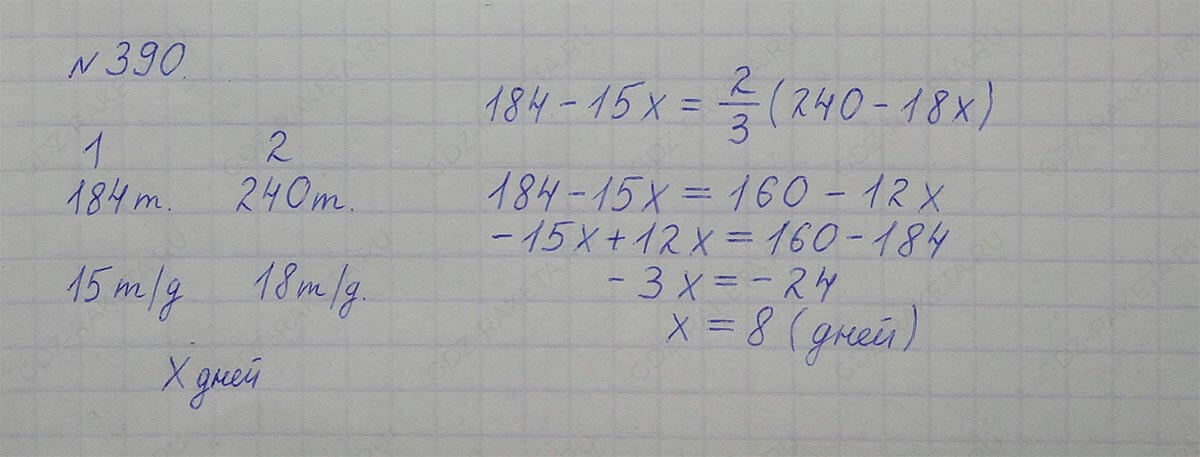 №390.
1 2
184т. 240т.
15т/д 18т/д.
x дней
184 - 15x = 2/3 (240 - 18x)
184 - 15x = 160 - 12x
- 15x + 12x = 160 - 184
- 3x = - 24
x = 8 (дней)
GDZ-RAKETA.RU